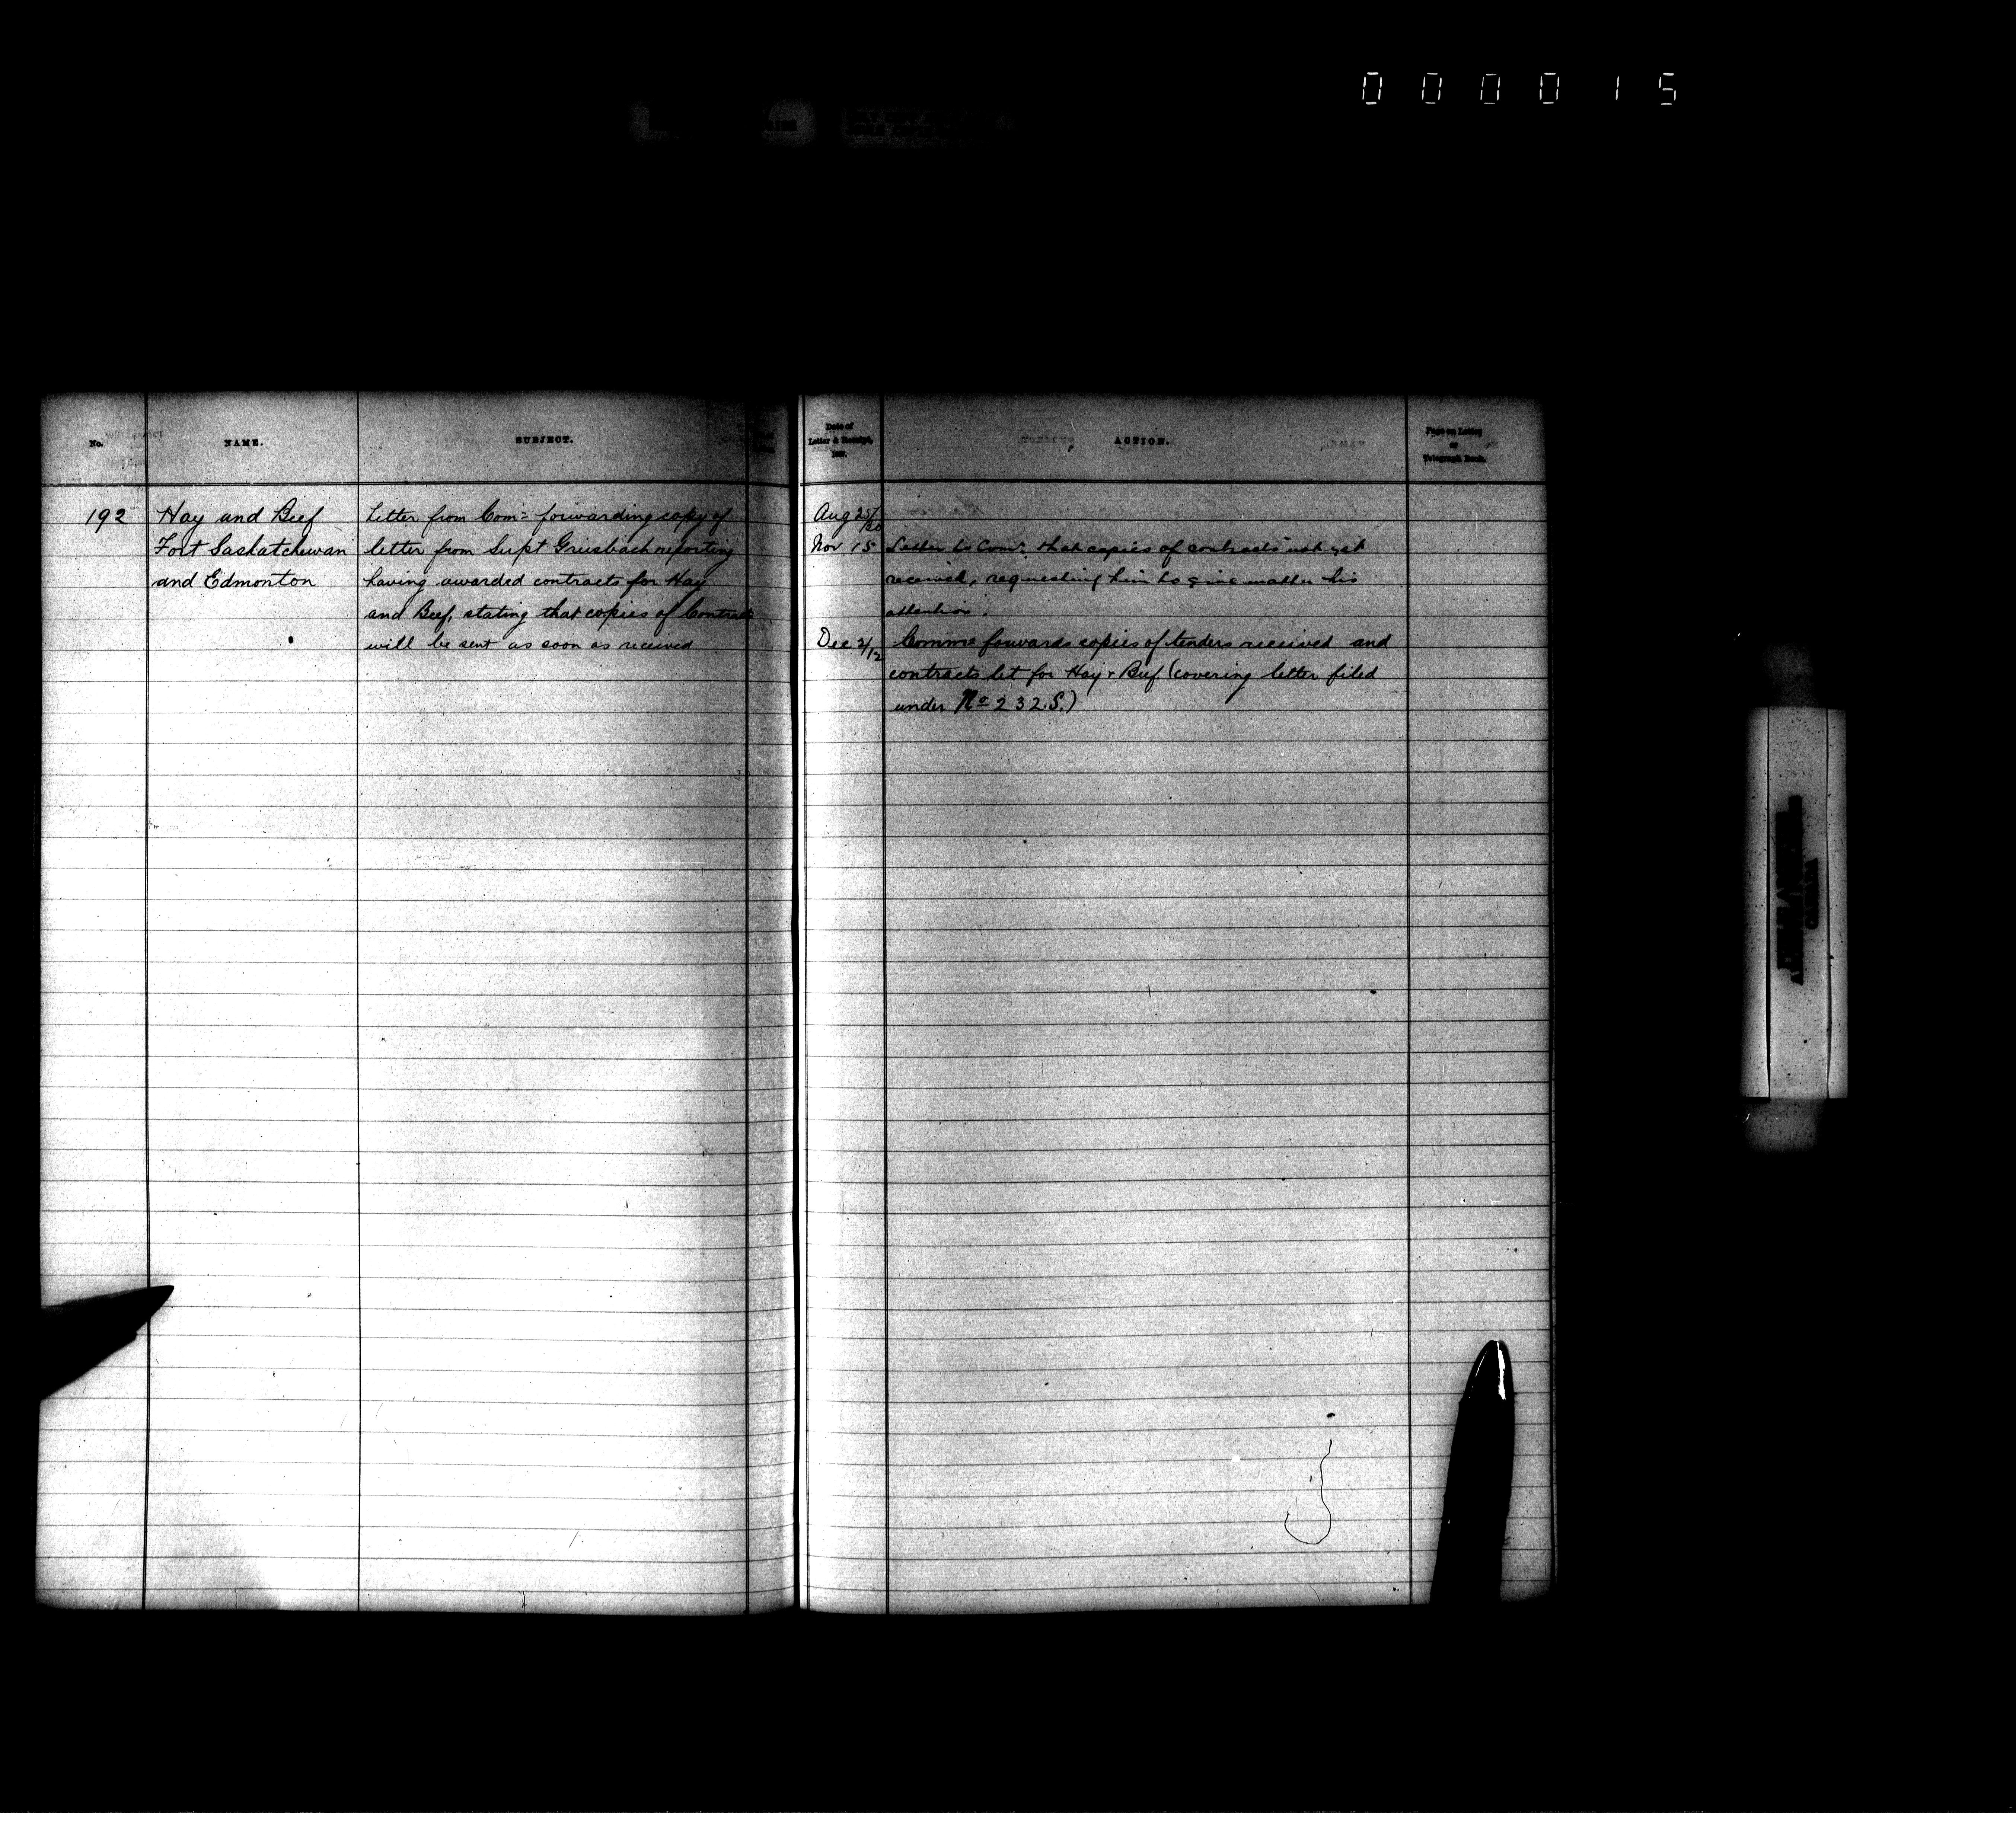 000015
No.
NAME.
SUBJECT.
Date of
Letter & Receipt,
188 .
ACTION.
Page on Letter
or
Telegraph Book.
192
Hay and Beef
Fort Saskatchewan
and Edmonton
Letter from Com= forwarding copy of
letter from Supt Griesbach reporting
having awarded contracts for Hay
and Beef, stating that copies of Contract
will be sent as soon as received
Aug 25/30
Nov 15 Letter to Com. that copies of contracts not yet
received, requesting him to give matter his
attention.
Dec 2/12 Commr forwards copies of tenders received and
contracts let for Hay & Beef (covering letter filed
under No 232.S.)